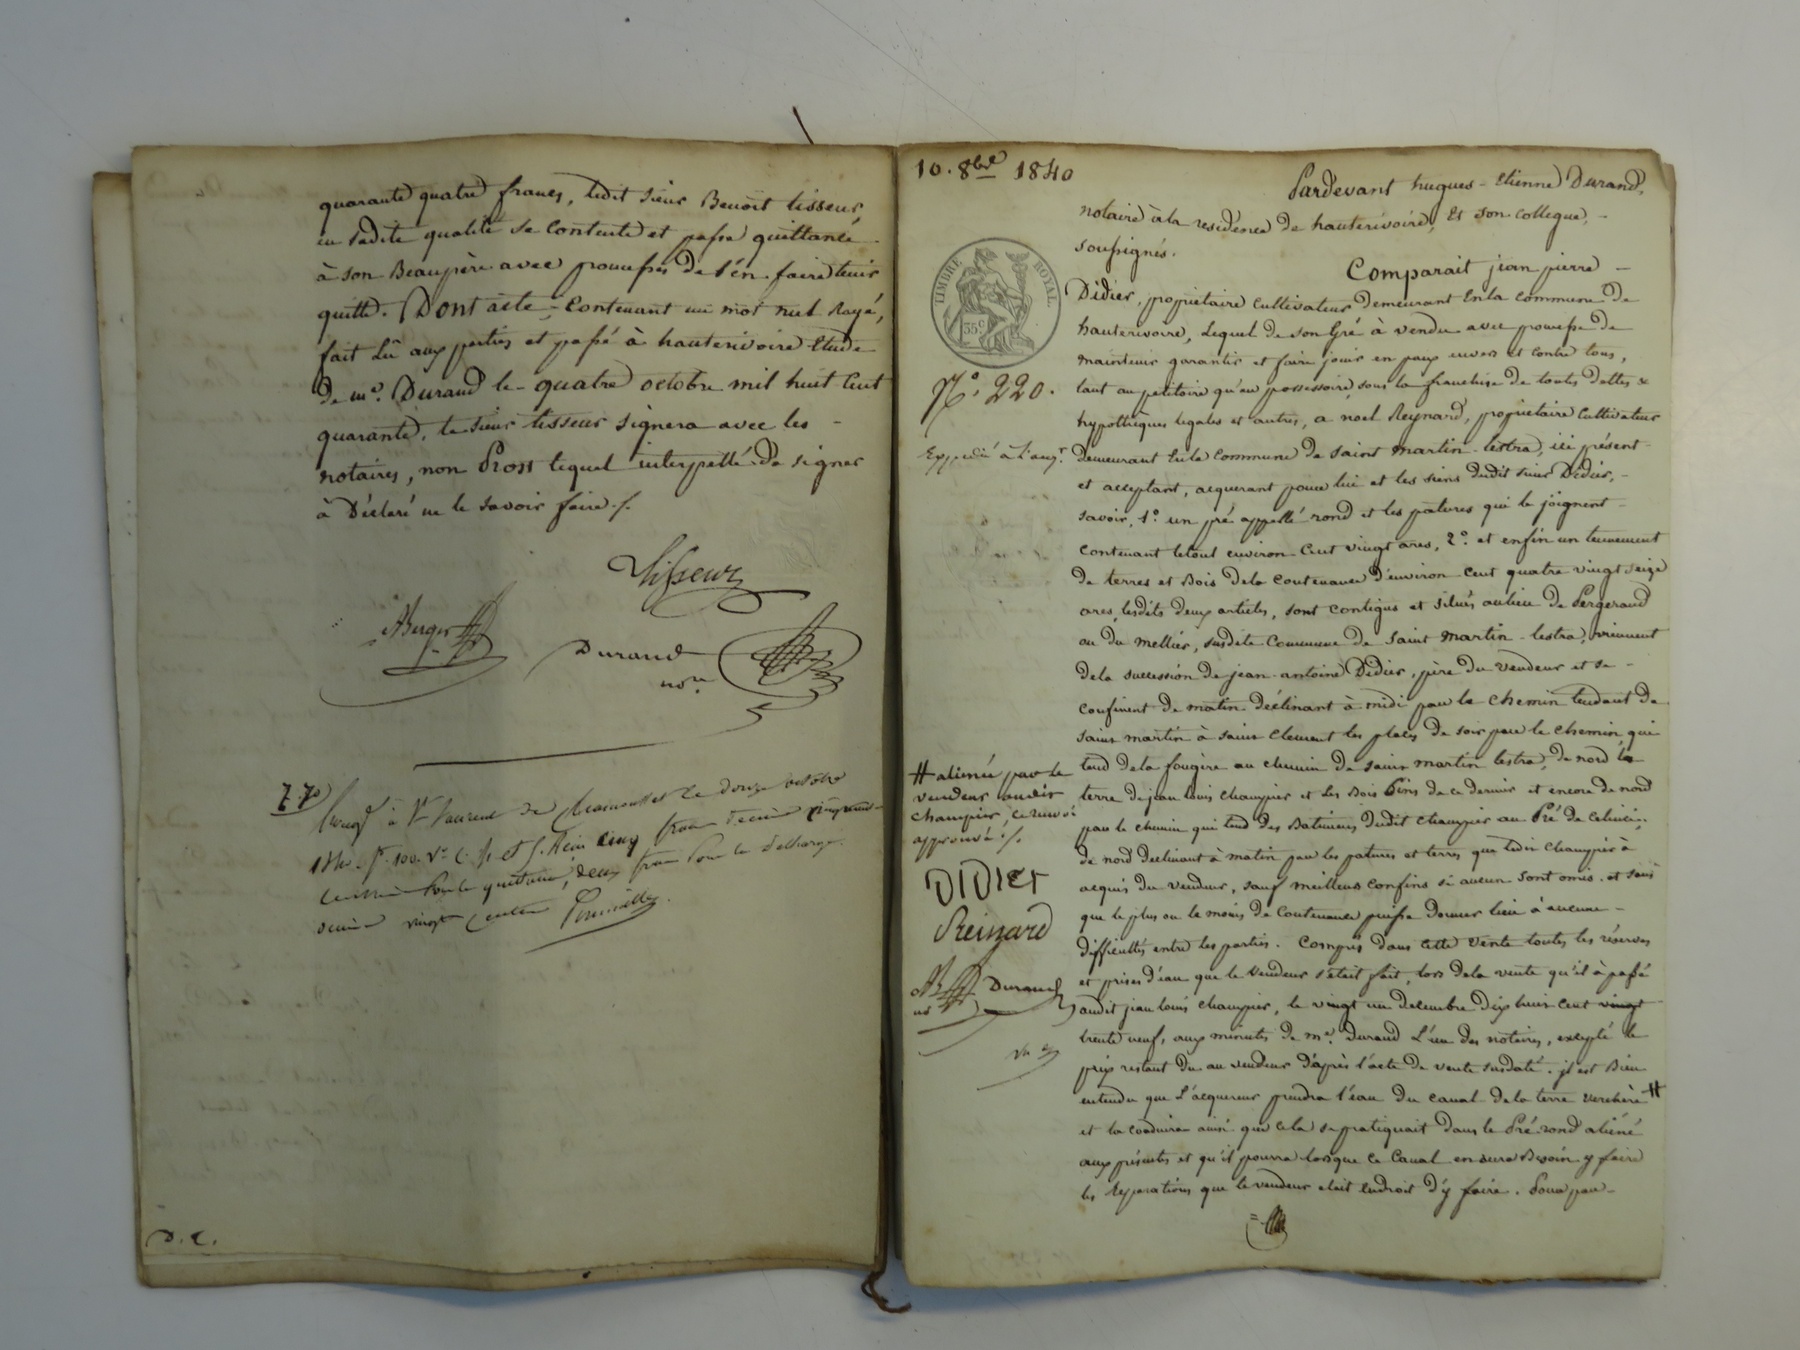 quarante quatre francs, ledit sieur Benoit tisseur,
en sadite qualité se contente et passe quittance
à son Beaupère avec promesse de l'en faire tenir
quitte. Dont acte, contenant un mot nul Rayé,
fait Lû aux parties et passé à hauterivoire Etude
de me. Durand le quatre octobre mil huit Cent
quarante, le sieur tisseur signera avec les -
notaires, non Pross lequel interpellé de signer
à Déclaré ne le savoir faire ./.
tisseur
ABerger
Durand
nore
7.70
à St Laurent de Chamousset le douze octobre
1840. fo. 100. Vo. C. et Reçu cinq francs décime cinquante
centimes pour la quittance, deux francs pour la décharge
décime vingt centimes
D. C.
10. 8bre 1840
Pardevant hugues - Etienne Durand,
notaire à la residence de hauterivoire, Et son collegue, -
soussignés.
TIMBRE ROYAL
35c
Comparait jean pierre -
Didier, propriétaire cultivateur demeurant En la commune de
hauterivoire, Lequel de son Gré à vendu avec promesse de
maintenir garantir et faire jouir en paix envers et contre tous,
No. 220.
tant au petitoire qu'au possessoire, sous la franchise de toutes dettes &
hypothèques légales et autres, a noel Reynard, propriétaire Cultivateur
Expedié à L'aqr.
demeurant En la Commune de saint Martin - lestra, ici présent
et acceptant, acquerant pour lui et les siens dudit sieur Didier, -
savoir, 1o. un pré appellé rond et les patures qui le joignent -
contenant le tout environ Cent vingt ares, 2o. et enfin un tennement
de terres et Bois de la contenance d'environ cent quatre vingt seize
ares, lesdits deux articles, sont contigus et situés au lieu de Pergeraud
ou du mellier, susdite Commune de saint Martin - lestra, viennent
de la succession de jean - antoine Didier, père du vendeur et se -
confinent de matin déclinant à midi par le chemin tendant de
saint martin à saint Clement les places de soir par le chemin qui
tend de la fougère au chemin de saint martin lestra, de nord la
terre de jean louis champier et les Bois Pins de ce dernier et encore de nord
par le chemin qui tend des Batimens dudit champier au Pré de
de nord declinant à matin par les patures et terres que ledit champier à
acquis du vendeur, sauf meilleurs confins si aucun sont omis. et sans
que le plus ou le moins de contenance puisse donner lieu à aucune -
difficultés entre les parties. Compris dans cette vente toutes les réserves
et prises d'eau que le vendeur s'était fait, lors de la vente qu'il à passé
audit jean louis champier, le vingt un decembre dix huit cent vingt
trente neuf, aux minutes de me. Durand L'un des notaires, excepté le
prix restant du au vendeur d'après l'acte de vente susdaté. il est Bien
entendu que L'acquereur prendra l'eau du canal de la terre verchère #
et la conduira ainsi que cela se pratiquait dans le Pré rond aliéné
aux présentes et qu'il pourra lorsque ce Canal en aura Besoin y faire
les Réparations que le vendeur était Endroit d'y faire. Pour par -
# alienée par le
vendeur audit
champier, ce renvoi
approuvé ./.
DIDIER
Reinard
AB
Durand